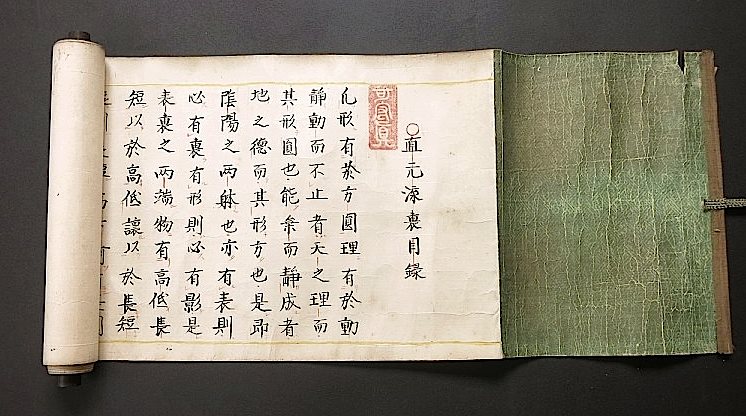 直元流裏目録
凡形有於方圓理有於動
静動而不止者天之理而
其形圓也能柔而静成者
地之德而其形方也是即
陰陽之两躰也亦有表則
必有裏有形則必有影是
表裏之两端物有高低長
短以於高低讓以於長短